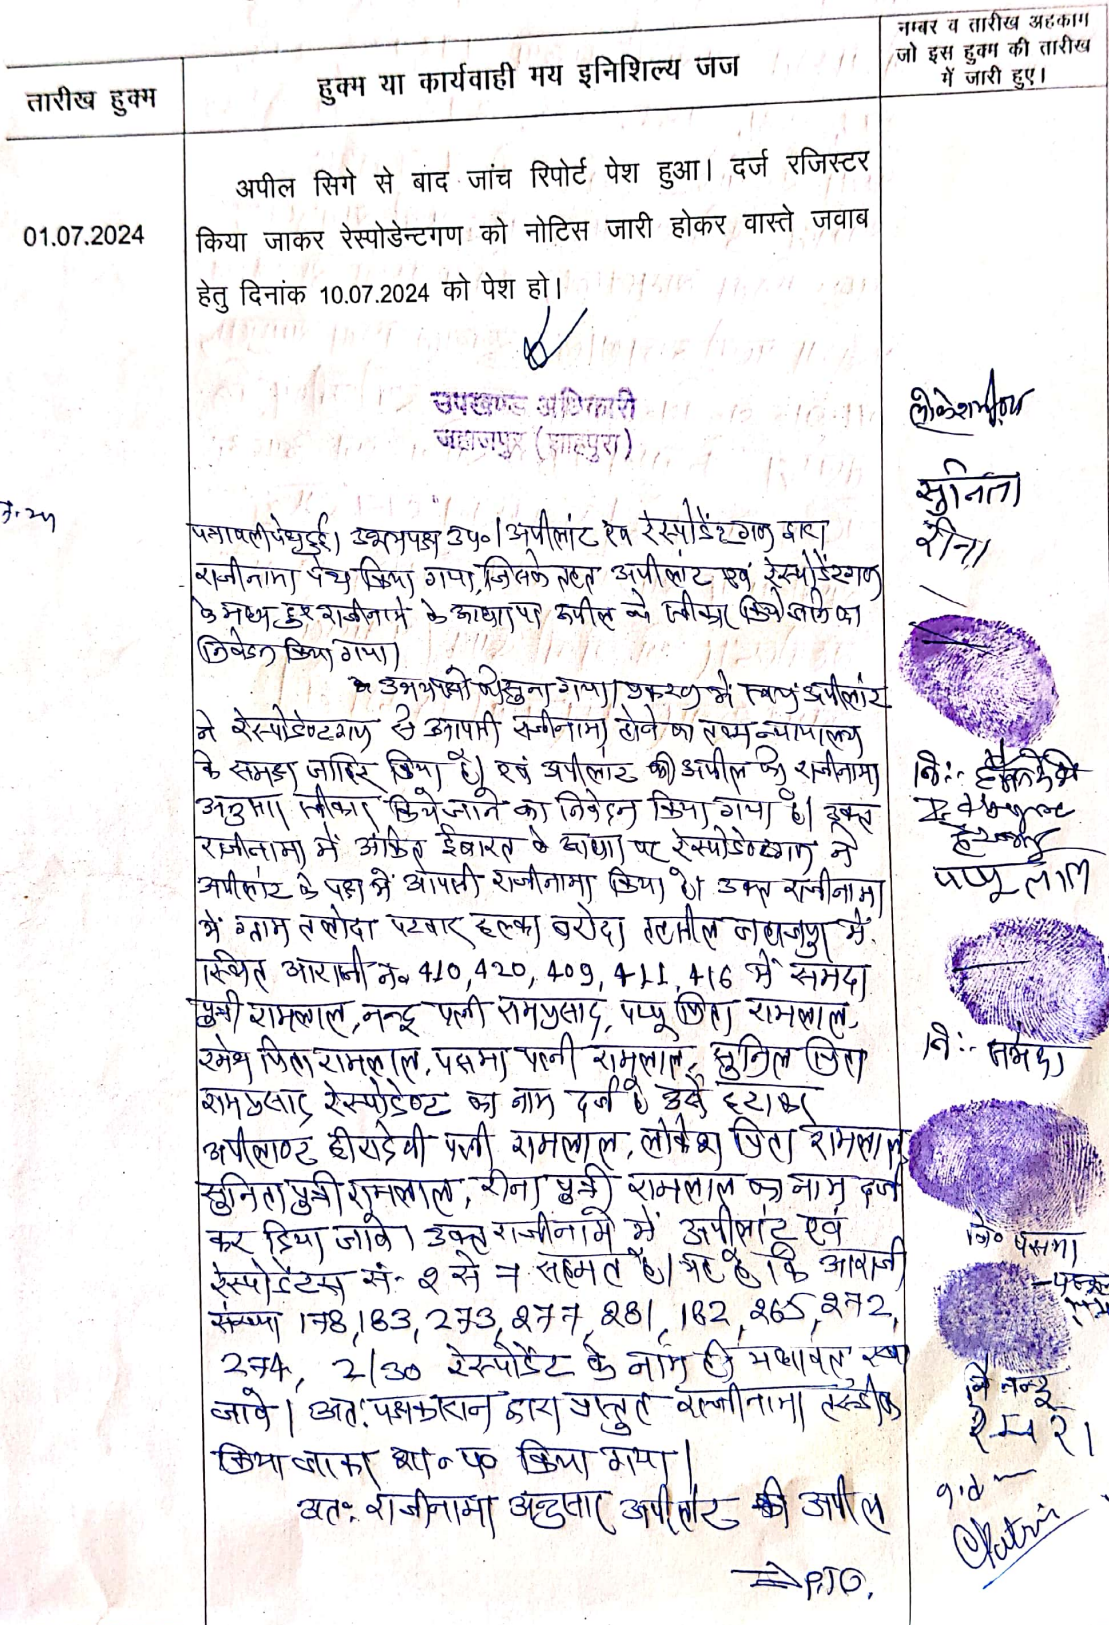 नम्बर व तारीख अहकाम
जो इस हुक्म की तारीख
में जारी हुए।
तारीख हुक्म
हुक्म या कार्यवाही मय इनिशिल्य जज
अपील सिगे से बाद जांच रिपोर्ट पेश हुआ। दर्ज रजिस्टर
01.07.2024
किया जाकर रेस्पोडेन्टगण को नोटिस जारी होकर वास्ते जवाब
हेतु दिनांक 10.07.2024 को पेश हो।
उपखण्ड अधिकारी
जहाजपुर (शाहपुरा)
सुनिता
रीना
पत्रावली पेश हुई। उभयपक्ष उप०। अपीलांट एव रेस्पोडेंटगण द्वारा
राजीनामा पेश किया गया, जिसके तहत अपीलांट एवं रेस्पोडेंटगण
के मध्य हुए राजीनामे के आधार पर अपील को स्वीकार किये जाने का
निवेदन किया गया।
उभयपक्षो को सुना गया। प्रकरण में स्वयं अपीलांट
ने रेस्पोडेण्टगण से आपसी राजीनामा होने का तथ्य न्यायालय
के समक्ष जाहिर किया है। एवं अपीलांट की अपील को राजीनामा
अनुसार स्वीकार किये जाने का निवेदन किया गया है। उक्त
राजीनामा में अंकित ईबारत के आधार पर रेस्पोडेण्टगण ने
अपीलांट के पक्ष में आपसी राजीनामा किया है। उक्त राजीनामा
में ग्राम तलोदा पटवार हल्का बरोदा तहसील जहाजपुर में
स्थित आराजी न० 410, 420, 409, 411, 416 में समदा
पुत्री रामलाल, नन्दू पत्नी रामप्रसाद, पप्पू पिता रामलाल,
रमेश पिता रामलाल, पसमा पत्नी रामलाल, सुनिल पिता
रामप्रसाद रेस्पोडेण्ट का नाम दर्ज है उसे हटाकर
अपीलाण्ट हीरादेवी पत्नी रामलाल, लोकेश पिता रामलाल,
सुनिता पुत्री रामलाल, रीना पुत्री रामलाल का नाम दर्ज
कर दिया जावे। उक्त राजीनामे में अपीलांट एवं
रेस्पोडेंटस सं. 2 से 7 सहमत है। यह है कि आराजी
संख्या 178, 183, 273, 277, 281, 182, 265, 272,
274, 2/30 रेस्पोडेंट के नाम ही यथावत रखा
जावे। अतः पक्षकारान द्वारा प्रस्तुत राजीनामा तस्दीक
किया जाकर शा० प० किया गया।
अतः राजीनामा अनुसार अपीलांट की अपील
P.T.O.
पप्पूलाल
नि:-
नि० पसमा
नि नन्दू